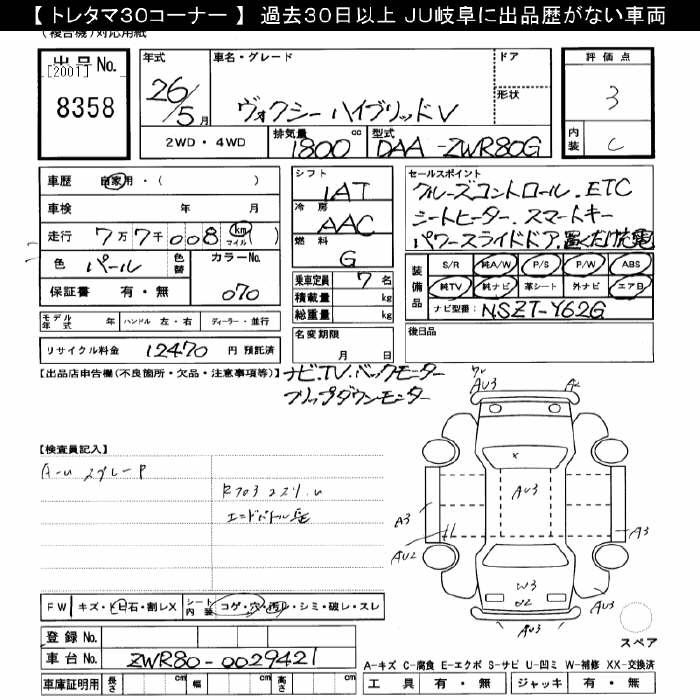 【 トレタマ30コーナー 】 過去30日以上 JU岐阜に出品歴がない車両
(複合機)対応用紙
出品No.
[2001]
8358
年式
26/5月
車名・グレード
ヴォクシー ハイブリッドV
ドア
形状
評価点
3
内装
C
2WD・4WD
排気量
1800
cc
型式
DAA-ZWR80G
車歴
自家用・( )
車検
年 月
走行
7万7千008 (km マイル)
色
パール
色替
カラーNo.
070
保証書 有・無
シフト
IAT
冷房
AAC
燃料
G
乗車定員 7 名
積載量 kg
総重量 kg
セールスポイント
クルーズコントロール. ETC
シートヒーター. スマートキー
パワースライドドア. 置くだけ充電
装備品
S/R 純A/W P/S P/W ABS
純TV 純ナビ 革シート 外ナビ エア日
ナビ型番: NSZT-Y62G
モデル年式 年 ハンドル 左・右 ディーラー・並行
リサイクル料金 12470 円 預託済
名変期限
月 日
後日品
【出品店申告欄(不良箇所・欠品・注意事項等)】
ナビ.TV.バックモーター
フリップダウンモニター
【検査員記入】
AU3
A2
AU3
A3
A3
AU2
W3
U2
AU3
AU3
FW キズ・トビ石・割レX
シート内装 コゲ・穴・汚レ・シミ・破レ・スレ
スペア
登録No.
車台No. ZWR80-0029421
A-キズ C-腐食 E-エクボ S-サビ U-凹ミ W-補修 XX-交換済
車庫証明用 長さ cm 幅 cm 高さ cm
工具 有・無 ジャッキ 有・無